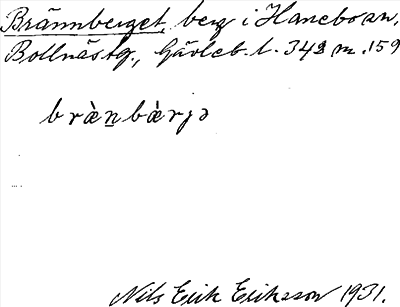 Brännberget, berg i Hanebo sn.
Bollnästg., Gävleb. l. 342 m. 159
bræ̀n̲bæ̀rjə
Nils Erik Eriksson 1931.